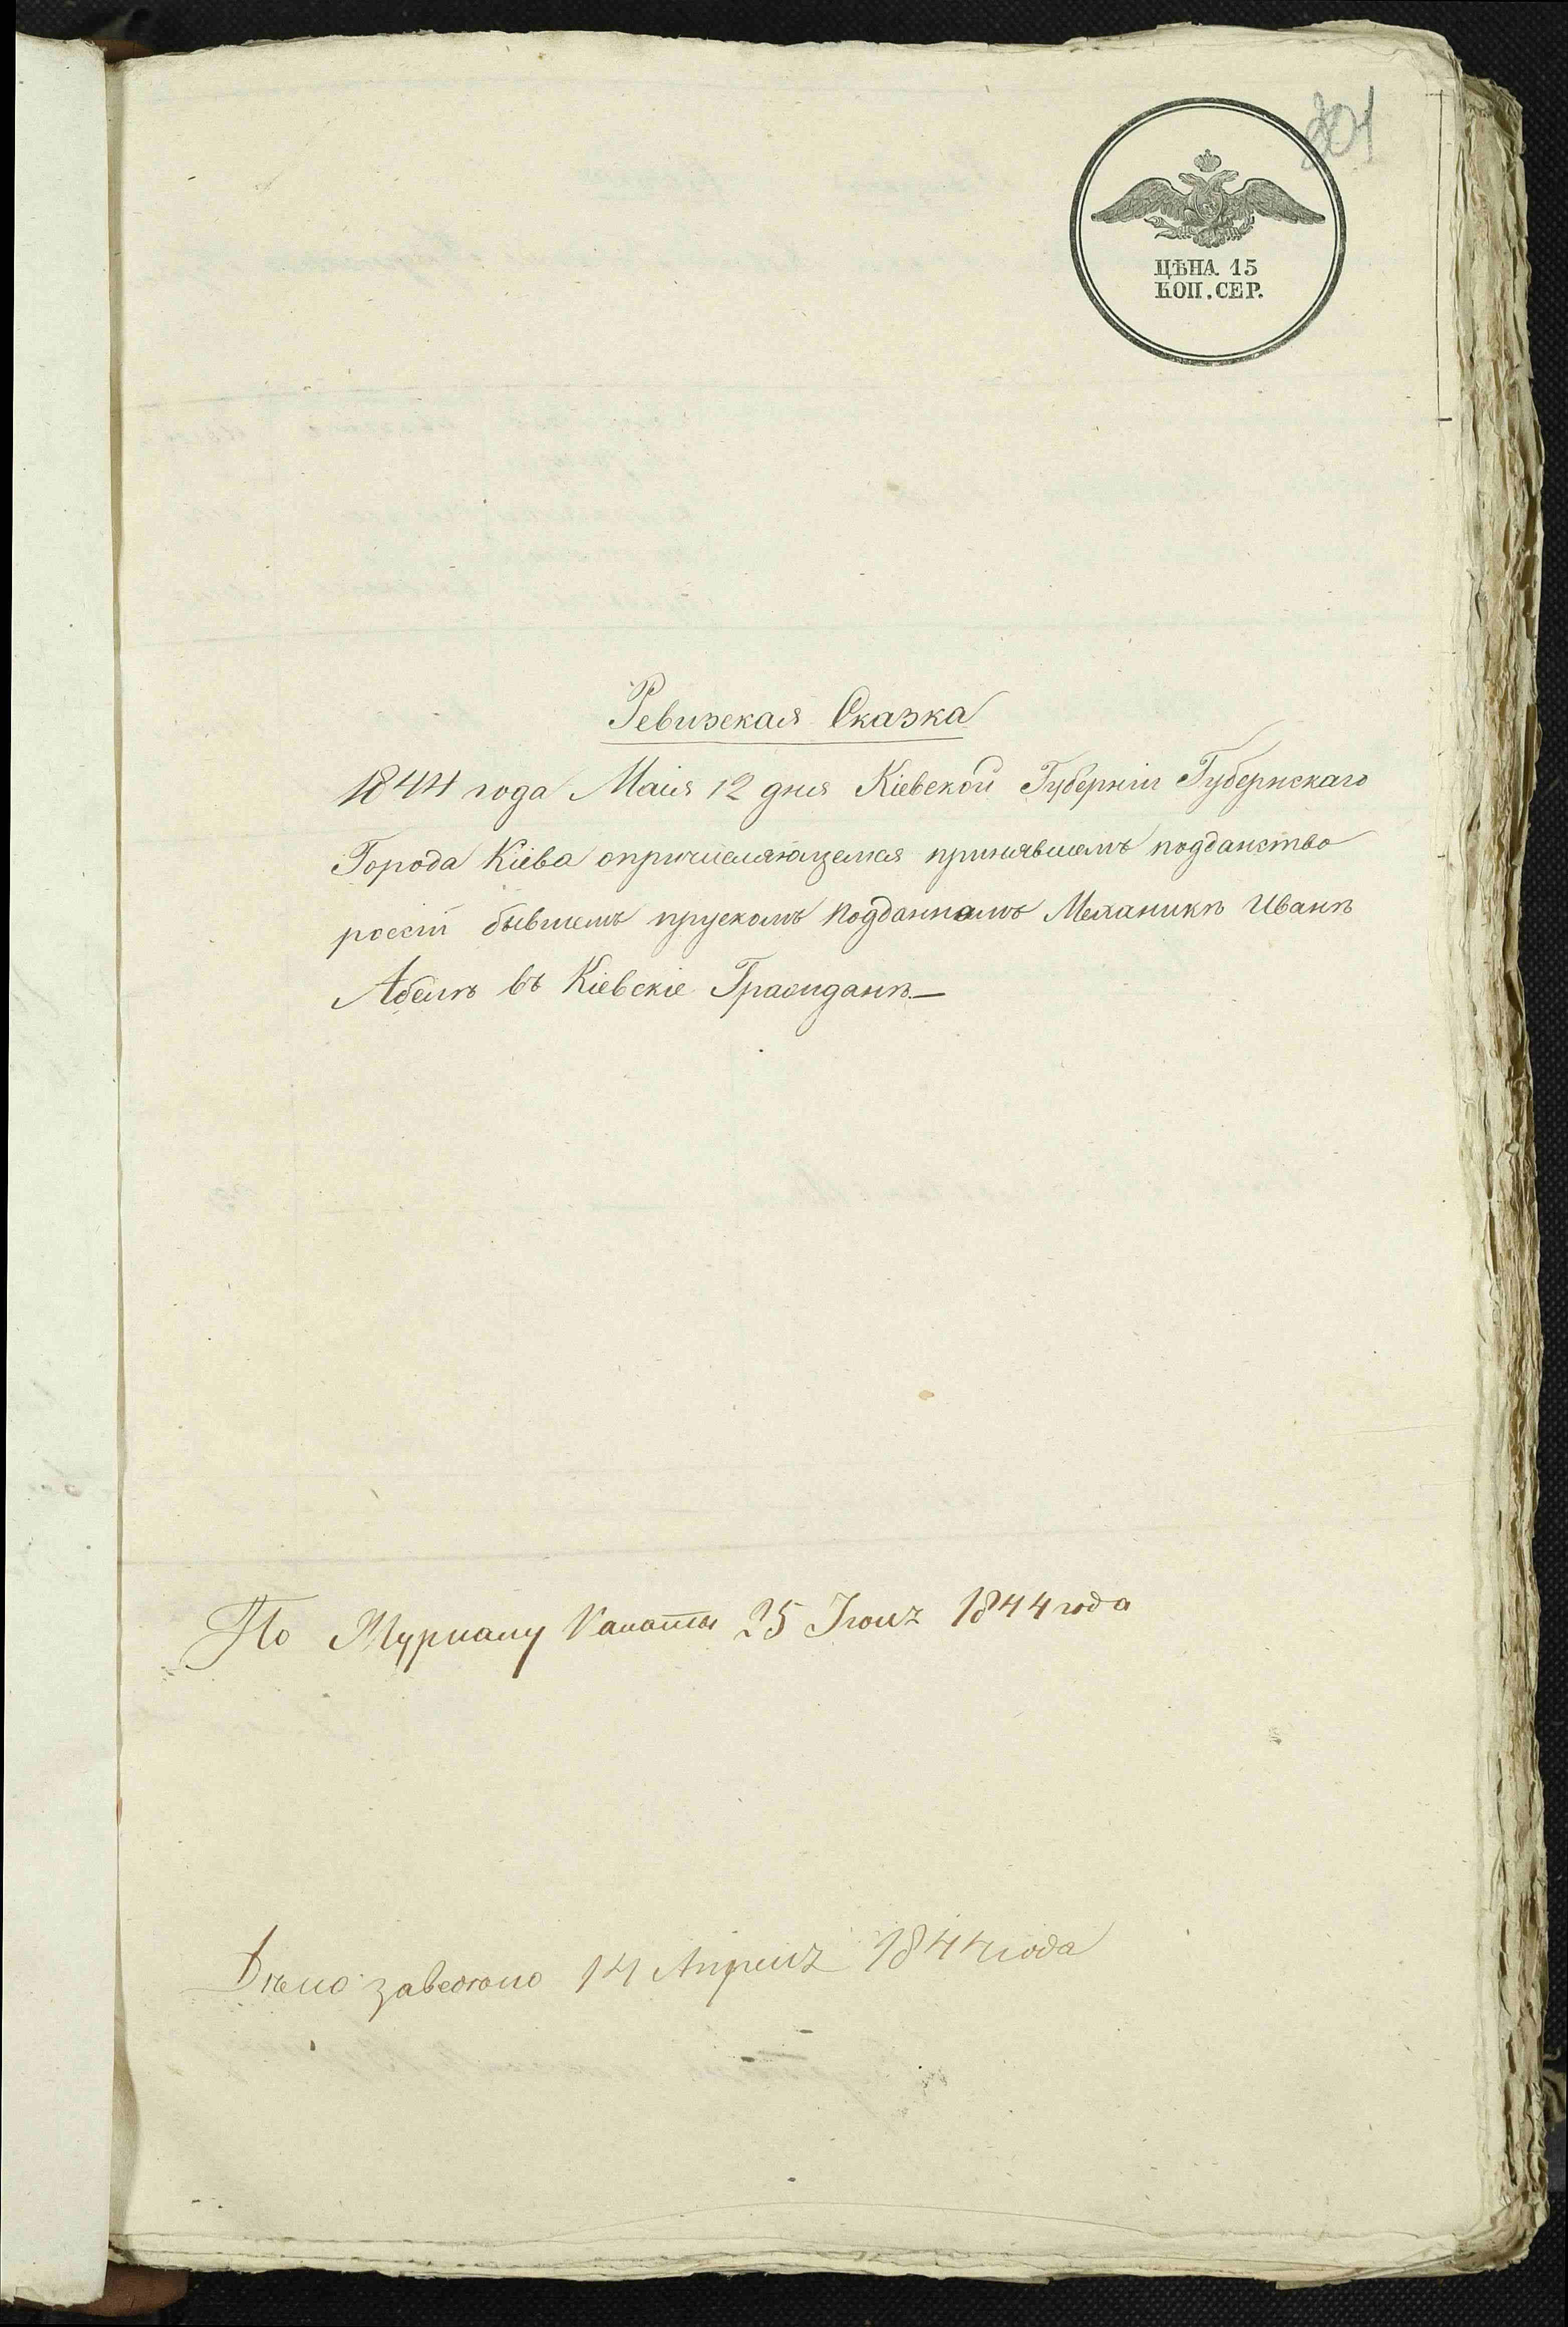 301
ЦѢНА. 15
КОП. СЕР.
Ревизская Сказка
1844 года Маия 12 дня Кіевской Губерніи Губернскаго
Города Кіева опричисляющемся принявшемъ подданство
россіи бывшемъ прускомъ подданномъ Механикѣ Иванѣ
Абелѣ въ Кіевские Гражданѣ.—
По Журналу Палаты 25 Іюня 1844 года
Дѣло заведено 14 Апреля 1844 года